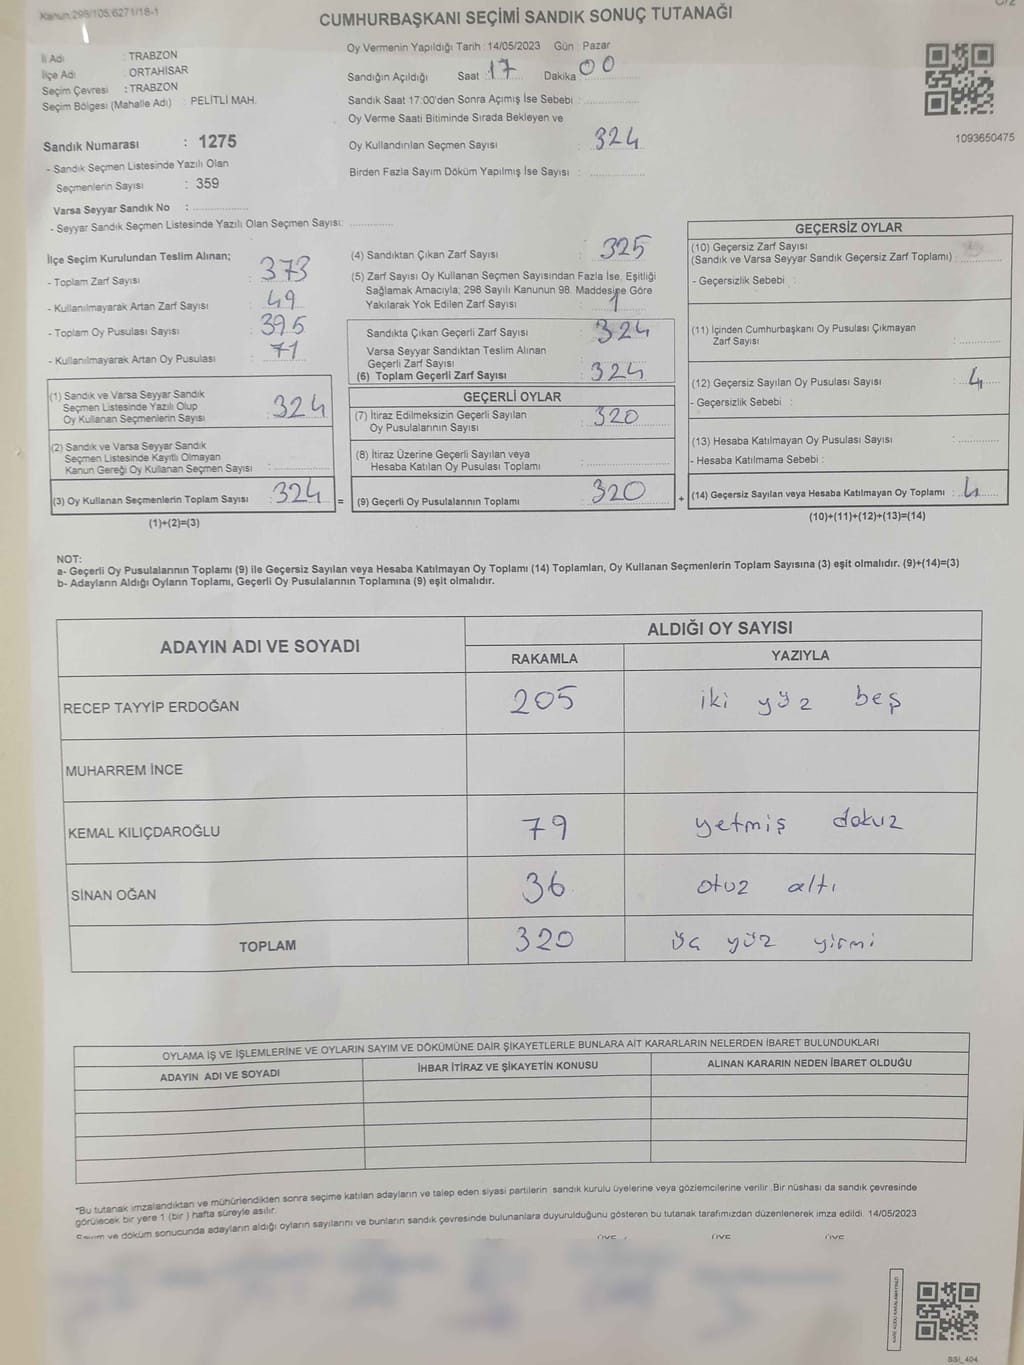 Kanun:298/105,6271/18-1
CUMHURBAŞKANI SEÇİMİ SANDIK SONUÇ TUTANAĞI
İl Adı : TRABZON
İlçe Adı : ORTAHİSAR
Seçim Çevresi : TRABZON
Seçim Bölgesi (Mahalle Adı) : PELİTLİ MAH.
Sandık Numarası : 1275
- Sandık Seçmen Listesinde Yazılı Olan
Seçmenlerin Sayısı : 359
Varsa Seyyar Sandık No :
- Seyyar Sandık Seçmen Listesinde Yazılı Olan Seçmen Sayısı:
Oy Vermenin Yapıldığı Tarih : 14/05/2023 Gün : Pazar
Sandığın Açıldığı Saat : 17 Dakika : 00
Sandık Saat 17:00'den Sonra Açımış İse Sebebi :
Oy Verme Saati Bitiminde Sırada Bekleyen ve
Oy Kullandırılan Seçmen Sayısı : 324
Birden Fazla Sayım Döküm Yapılmış İse Sayısı :
1093650475
İlçe Seçim Kurulundan Teslim Alınan;
- Toplam Zarf Sayısı : 373
- Kullanılmayarak Artan Zarf Sayısı : 49
- Toplam Oy Pusulası Sayısı : 395
- Kullanılmayarak Artan Oy Pusulası : 71
(1) Sandık ve Varsa Seyyar Sandık
Seçmen Listesinde Yazılı Olup
Oy Kullanan Seçmenlerin Sayısı : 324
(2) Sandık ve Varsa Seyyar Sandık
Seçmen Listesinde Kayıtlı Olmayan
Kanun Gereği Oy Kullanan Seçmen Sayısı :
(3) Oy Kullanan Seçmenlerin Toplam Sayısı : 324 =
(1)+(2)=(3)
(4) Sandıktan Çıkan Zarf Sayısı : 325
(5) Zarf Sayısı Oy Kullanan Seçmen Sayısından Fazla İse, Eşitliği
Sağlamak Amacıyla; 298 Sayılı Kanunun 98. Maddesine Göre
Yakılarak Yok Edilen Zarf Sayısı : 1
Sandıkta Çıkan Geçerli Zarf Sayısı : 324
Varsa Seyyar Sandıktan Teslim Alınan
Geçerli Zarf Sayısı
(6) Toplam Geçerli Zarf Sayısı : 324
GEÇERLİ OYLAR
(7) İtiraz Edilmeksizin Geçerli Sayılan
Oy Pusulalarının Sayısı : 320
(8) İtiraz Üzerine Geçerli Sayılan veya
Hesaba Katılan Oy Pusulası Toplamı :
(9) Geçerli Oy Pusulalarının Toplamı : 320 +
GEÇERSİZ OYLAR
(10) Geçersiz Zarf Sayısı
(Sandık ve Varsa Seyyar Sandık Geçersiz Zarf Toplamı) :
- Geçersizlik Sebebi :
(11) İçinden Cumhurbaşkanı Oy Pusulası Çıkmayan
Zarf Sayısı :
(12) Geçersiz Sayılan Oy Pusulası Sayısı : 4
- Geçersizlik Sebebi :
(13) Hesaba Katılmayan Oy Pusulası Sayısı :
- Hesaba Katılmama Sebebi :
(14) Geçersiz Sayılan veya Hesaba Katılmayan Oy Toplamı : 4
(10)+(11)+(12)+(13)=(14)
NOT:
a- Geçerli Oy Pusulalarının Toplamı (9) ile Geçersiz Sayılan veya Hesaba Katılmayan Oy Toplamı (14) Toplamları, Oy Kullanan Seçmenlerin Toplam Sayısına (3) eşit olmalıdır. (9)+(14)=(3)
b- Adayların Aldığı Oyların Toplamı, Geçerli Oy Pusulalarının Toplamına (9) eşit olmalıdır.
ADAYIN ADI VE SOYADI ALDIĞI OY SAYISI
RAKAMLA YAZIYLA
RECEP TAYYİP ERDOĞAN 205 iki yüz beş
MUHARREM İNCE
KEMAL KILIÇDAROĞLU 79 yetmiş dokuz
SİNAN OĞAN 36 otuz altı
TOPLAM 320 üç yüz yirmi
OYLAMA İŞ VE İŞLEMLERİNE VE OYLARIN SAYIM VE DÖKÜMÜNE DAİR ŞİKAYETLERLE BUNLARA AİT KARARLARIN NELERDEN İBARET BULUNDUKLARI
ADAYIN ADI VE SOYADI İHBAR İTİRAZ VE ŞİKAYETİN KONUSU ALINAN KARARIN NEDEN İBARET OLDUĞU
*Bu tutanak imzalandıktan ve mühürlendikten sonra seçime katılan adayların ve talep eden siyasi partilerin sandık kurulu üyelerine veya gözlemcilerine verilir. Bir nüshası da sandık çevresinde
görülecek bir yere 1 (bir) hafta süreyle asılır.
Sayım ve döküm sonucunda adayların aldığı oyların sayılarını ve bunların sandık çevresinde bulunanlara duyurulduğunu gösteren bu tutanak tarafımızdan düzenlenerek imza edildi. 14/05/2023
ÜYE ÜYE ÜYE
SSI_404